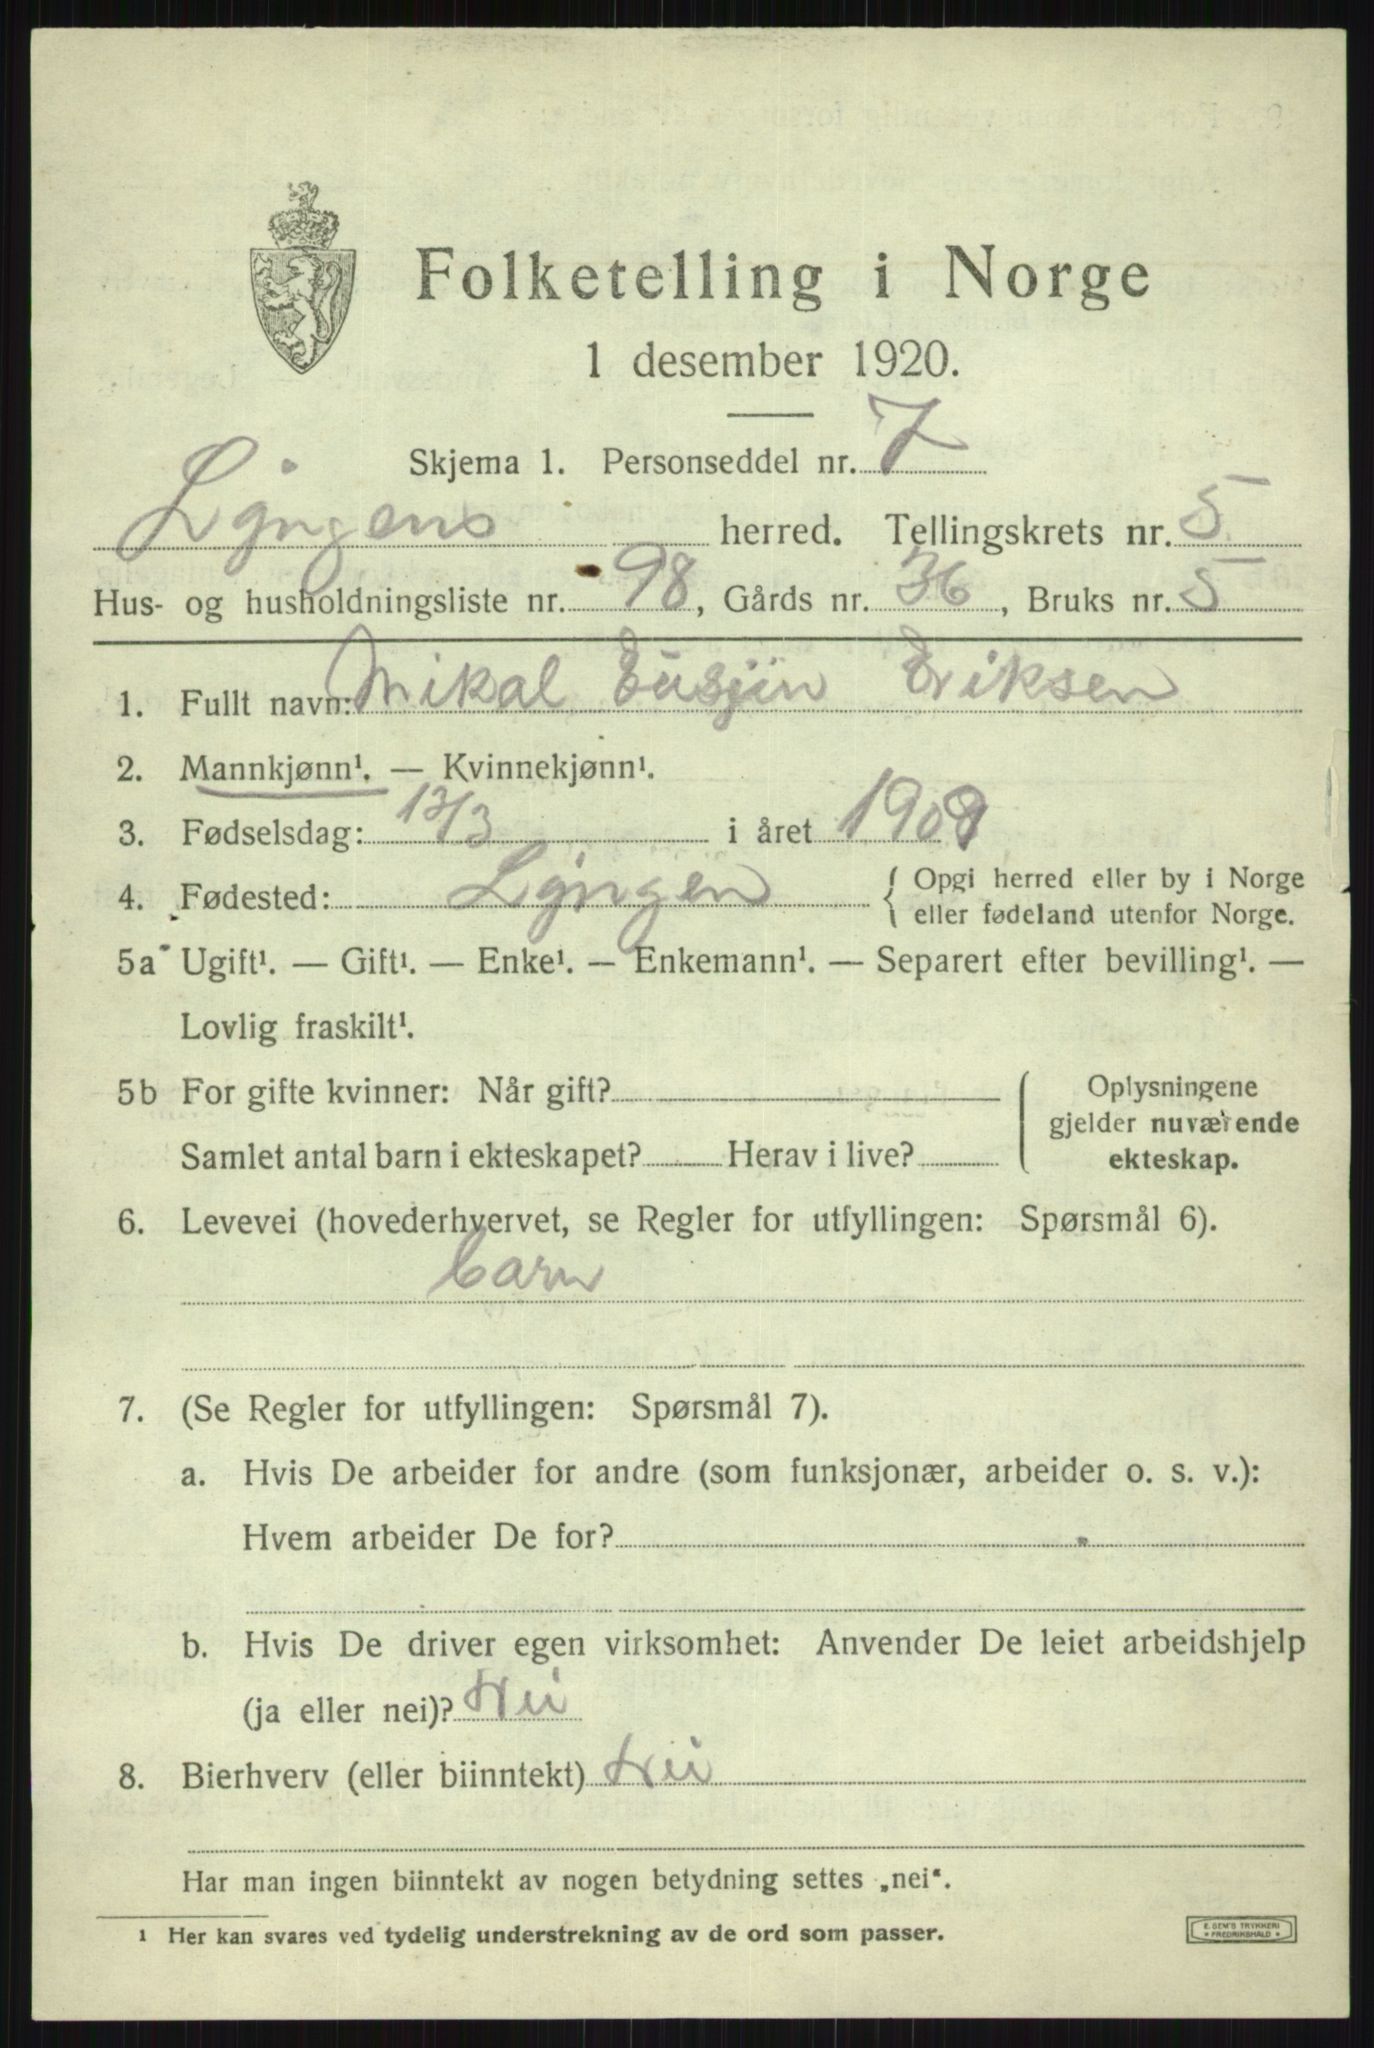 Folketelling i Norge
1 desember 1920.
Skjema 1. Personseddel nr. 7
Lyngens herred. Tellingskrets nr. 5
Hus- og husholdningsliste nr. 98, Gårds nr. 36, Bruks nr. 5
1. Fullt navn: Mikal Eusjin Eriksen
2. Mannkjønn¹. — Kvinnekjønn¹.
3. Fødselsdag: 13/3 i året 1909
4. Fødested: Lyngen { Opgi herred eller by i Norge
eller fødeland utenfor Norge.
5a Ugift¹. — Gift¹. — Enke¹. — Enkemann¹. — Separert efter bevilling¹. —
Lovlig fraskilt¹.
5b For gifte kvinner: Når gift?
Samlet antal barn i ekteskapet? Herav i live?
Oplysningene
gjelder nuværende
ekteskap.
6. Levevei (hovederhvervet, se Regler for utfyllingen: Spørsmål 6).
barn
7. (Se Regler for utfyllingen: Spørsmål 7).
a. Hvis De arbeider for andre (som funksjonær, arbeider o. s. v.):
Hvem arbeider De for?
b. Hvis De driver egen virksomhet: Anvender De leiet arbeidshjelp
(ja eller nei)? Nei
8. Bierhverv (eller biinntekt) Nei
Har man ingen biinntekt av nogen betydning settes „nei“.
¹ Her kan svares ved tydelig understrekning av de ord som passer.
E. SEM'S TRYKKERI
* FREDRIKSHALD *